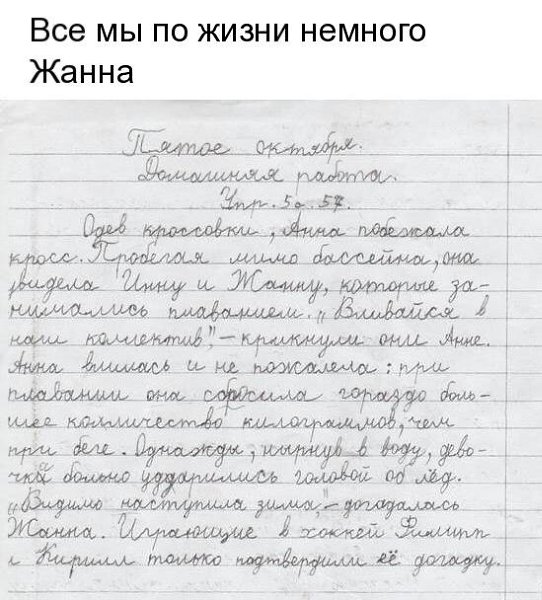 Все мы по жизни немного
Жанна
Пятое октября.
Домашняя работа.
Упр. 5 а. 57.
Одев кроссовки, Анна побежала
кросс. Пробегая мимо бассейна, она
увидела Инну и Жанну, которые за-
нимались плаванием. „Вливайся в
наш коллектив", – крикнули они Анне.
Анна влилась и не пожалела: при
плавании она сбросила гораздо боль-
шее количество килограммов, чем
при беге. Однажды, нырнув в воду, дево-
чки больно ударились головой об лёд.
„Видимо наступила зима," – догадалась
Жанна. Играющие в хоккей Филипп
и Кирилл только подтвердили её догадку.